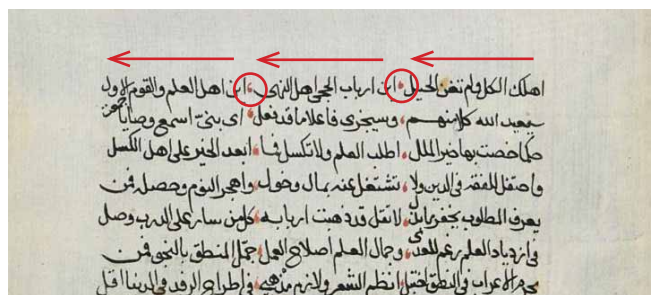 اهلك الكل ولم تغن الحيل اين ارباب الحجى اهل النهى اين اهل العلم والقوم الاول
سيعيد الله كلا منهم وسيجزى فاعلا ما قد فعل اى بنىّ اسمع وصايا جمعت
حكما خصت بها خير الملل اطلب العلم ولا تكسل فما ابعد الخير على اهل الكسل
واحتفل للفقه فى الدين ولا تشتغل عنه بمال وخول واهجر النوم وحصله فمن
يعرف المطلوب يحقر ما بذل لا تقل قد ذهبت اربابه كل من سار على الدرب وصل
فى ازدياد العلم رغم للعدى وجمال العلم اصلاح العمل جمّل المنطق بالنحو فمن
يحرم الاعراب فى النطق اختبل انظم الشعر ولازم مذهبى فى اطراح الرفد فى الدنيا اقل